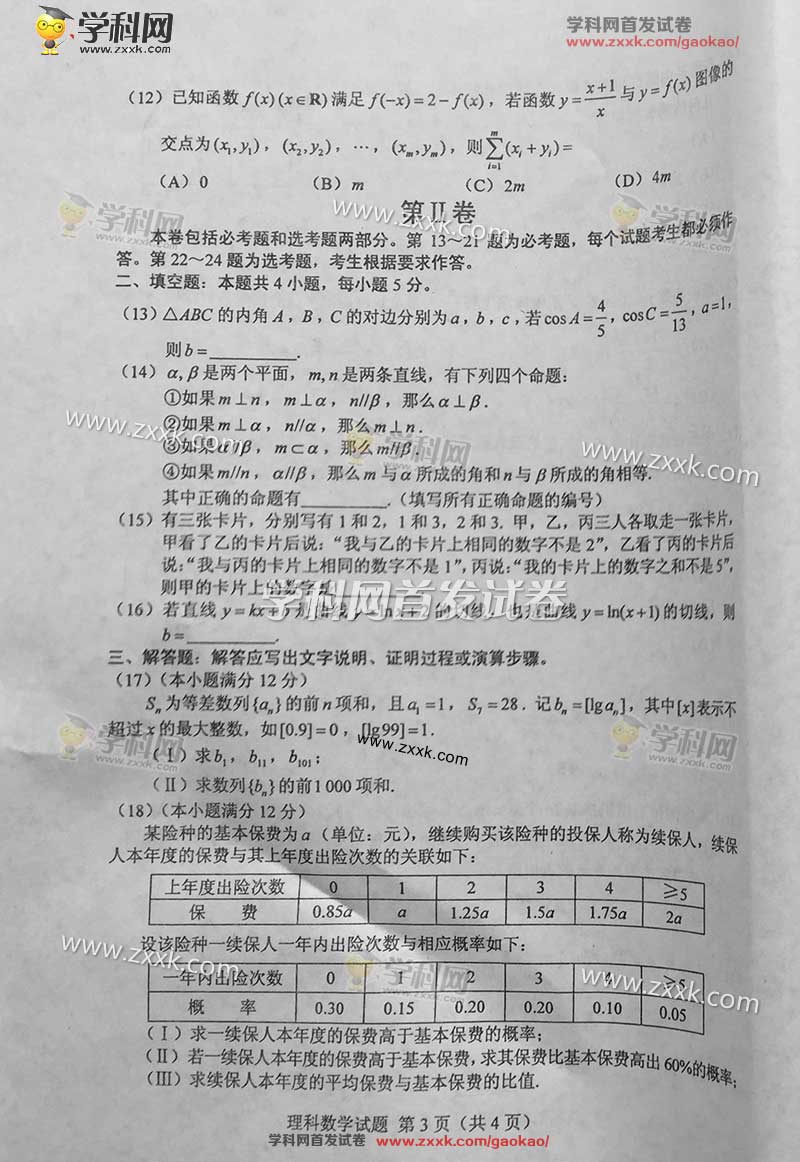 学科网
www.zxxk.com
学科网首发试卷
www.zxxk.com/gaokao/
(12) 已知函数 f(x)(x∈R) 满足 f(-x)=2-f(x)，若函数 y=(x+1)/x 与 y=f(x) 图像的
交点为 (x₁,y₁)，(x₂,y₂)，⋯，(xₘ,yₘ)，则 ∑_{i=1}^{m}(xᵢ+yᵢ)=
(A) 0 (B) m (C) 2m (D) 4m
第 II 卷
本卷包括必考题和选考题两部分。第 13～21 题为必考题，每个试题考生都必须作
答。第 22～24 题为选考题，考生根据要求作答。
二、填空题：本题共 4 小题，每小题 5 分。
(13) △ABC 的内角 A，B，C 的对边分别为 a，b，c，若 cos A=4/5，cos C=5/13，a=1，
则 b=________.
(14) α,β 是两个平面，m,n 是两条直线，有下列四个命题：
①如果 m⊥n，m⊥α，n//β，那么 α⊥β.
②如果 m⊥α，n//α，那么 m⊥n.
③如果 α//β，m⊂α，那么 m//β.
④如果 m//n，α//β，那么 m 与 α 所成的角和 n 与 β 所成的角相等.
其中正确的命题有________.（填写所有正确命题的编号）
(15) 有三张卡片，分别写有 1 和 2，1 和 3，2 和 3. 甲，乙，丙三人各取走一张卡片，
甲看了乙的卡片后说：“我与乙的卡片上相同的数字不是 2”，乙看了丙的卡片后
说：“我与丙的卡片上相同的数字不是 1”，丙说：“我的卡片上的数字之和不是 5”，
则甲的卡片上的数字
学科网首发试卷
(16) 若直线 y=kx+ 线 y=ln x+ 的切线，也是曲线 y=ln(x+1) 的切线，则
b=________.
三、解答题：解答应写出文字说明、证明过程或演算步骤。
(17)（本小题满分 12 分）
Sₙ 为等差数列 {aₙ} 的前 n 项和，且 a₁=1，S₇=28. 记 bₙ=[lg aₙ]，其中 [x] 表示不
超过 x 的最大整数，如 [0.9]=0，[lg99]=1.
(Ⅰ) 求 b₁，b₁₁，b₁₀₁；
(Ⅱ) 求数列 {bₙ} 的前 1 000 项和.
(18)（本小题满分 12 分）
某险种的基本保费为 a（单位：元），继续购买该险种的投保人称为续保人，续保
人本年度的保费与其上年度出险次数的关联如下：
上年度出险次数 0 1 2 3 4 ≥5
保 费 0.85a a 1.25a 1.5a 1.75a 2a
设该险种一续保人一年内出险次数与相应概率如下：
一年内出险次数 0 1 2 3 4 ≥5
概 率 0.30 0.15 0.20 0.20 0.10 0.05
(Ⅰ) 求一续保人本年度的保费高于基本保费的概率；
(Ⅱ) 若一续保人本年度的保费高于基本保费，求其保费比基本保费高出 60%的概率；
(Ⅲ) 求续保人本年度的平均保费与基本保费的比值.
理科数学试题 第 3 页（共 4 页）
学科网首发试卷 www.zxxk.com/gaokao/